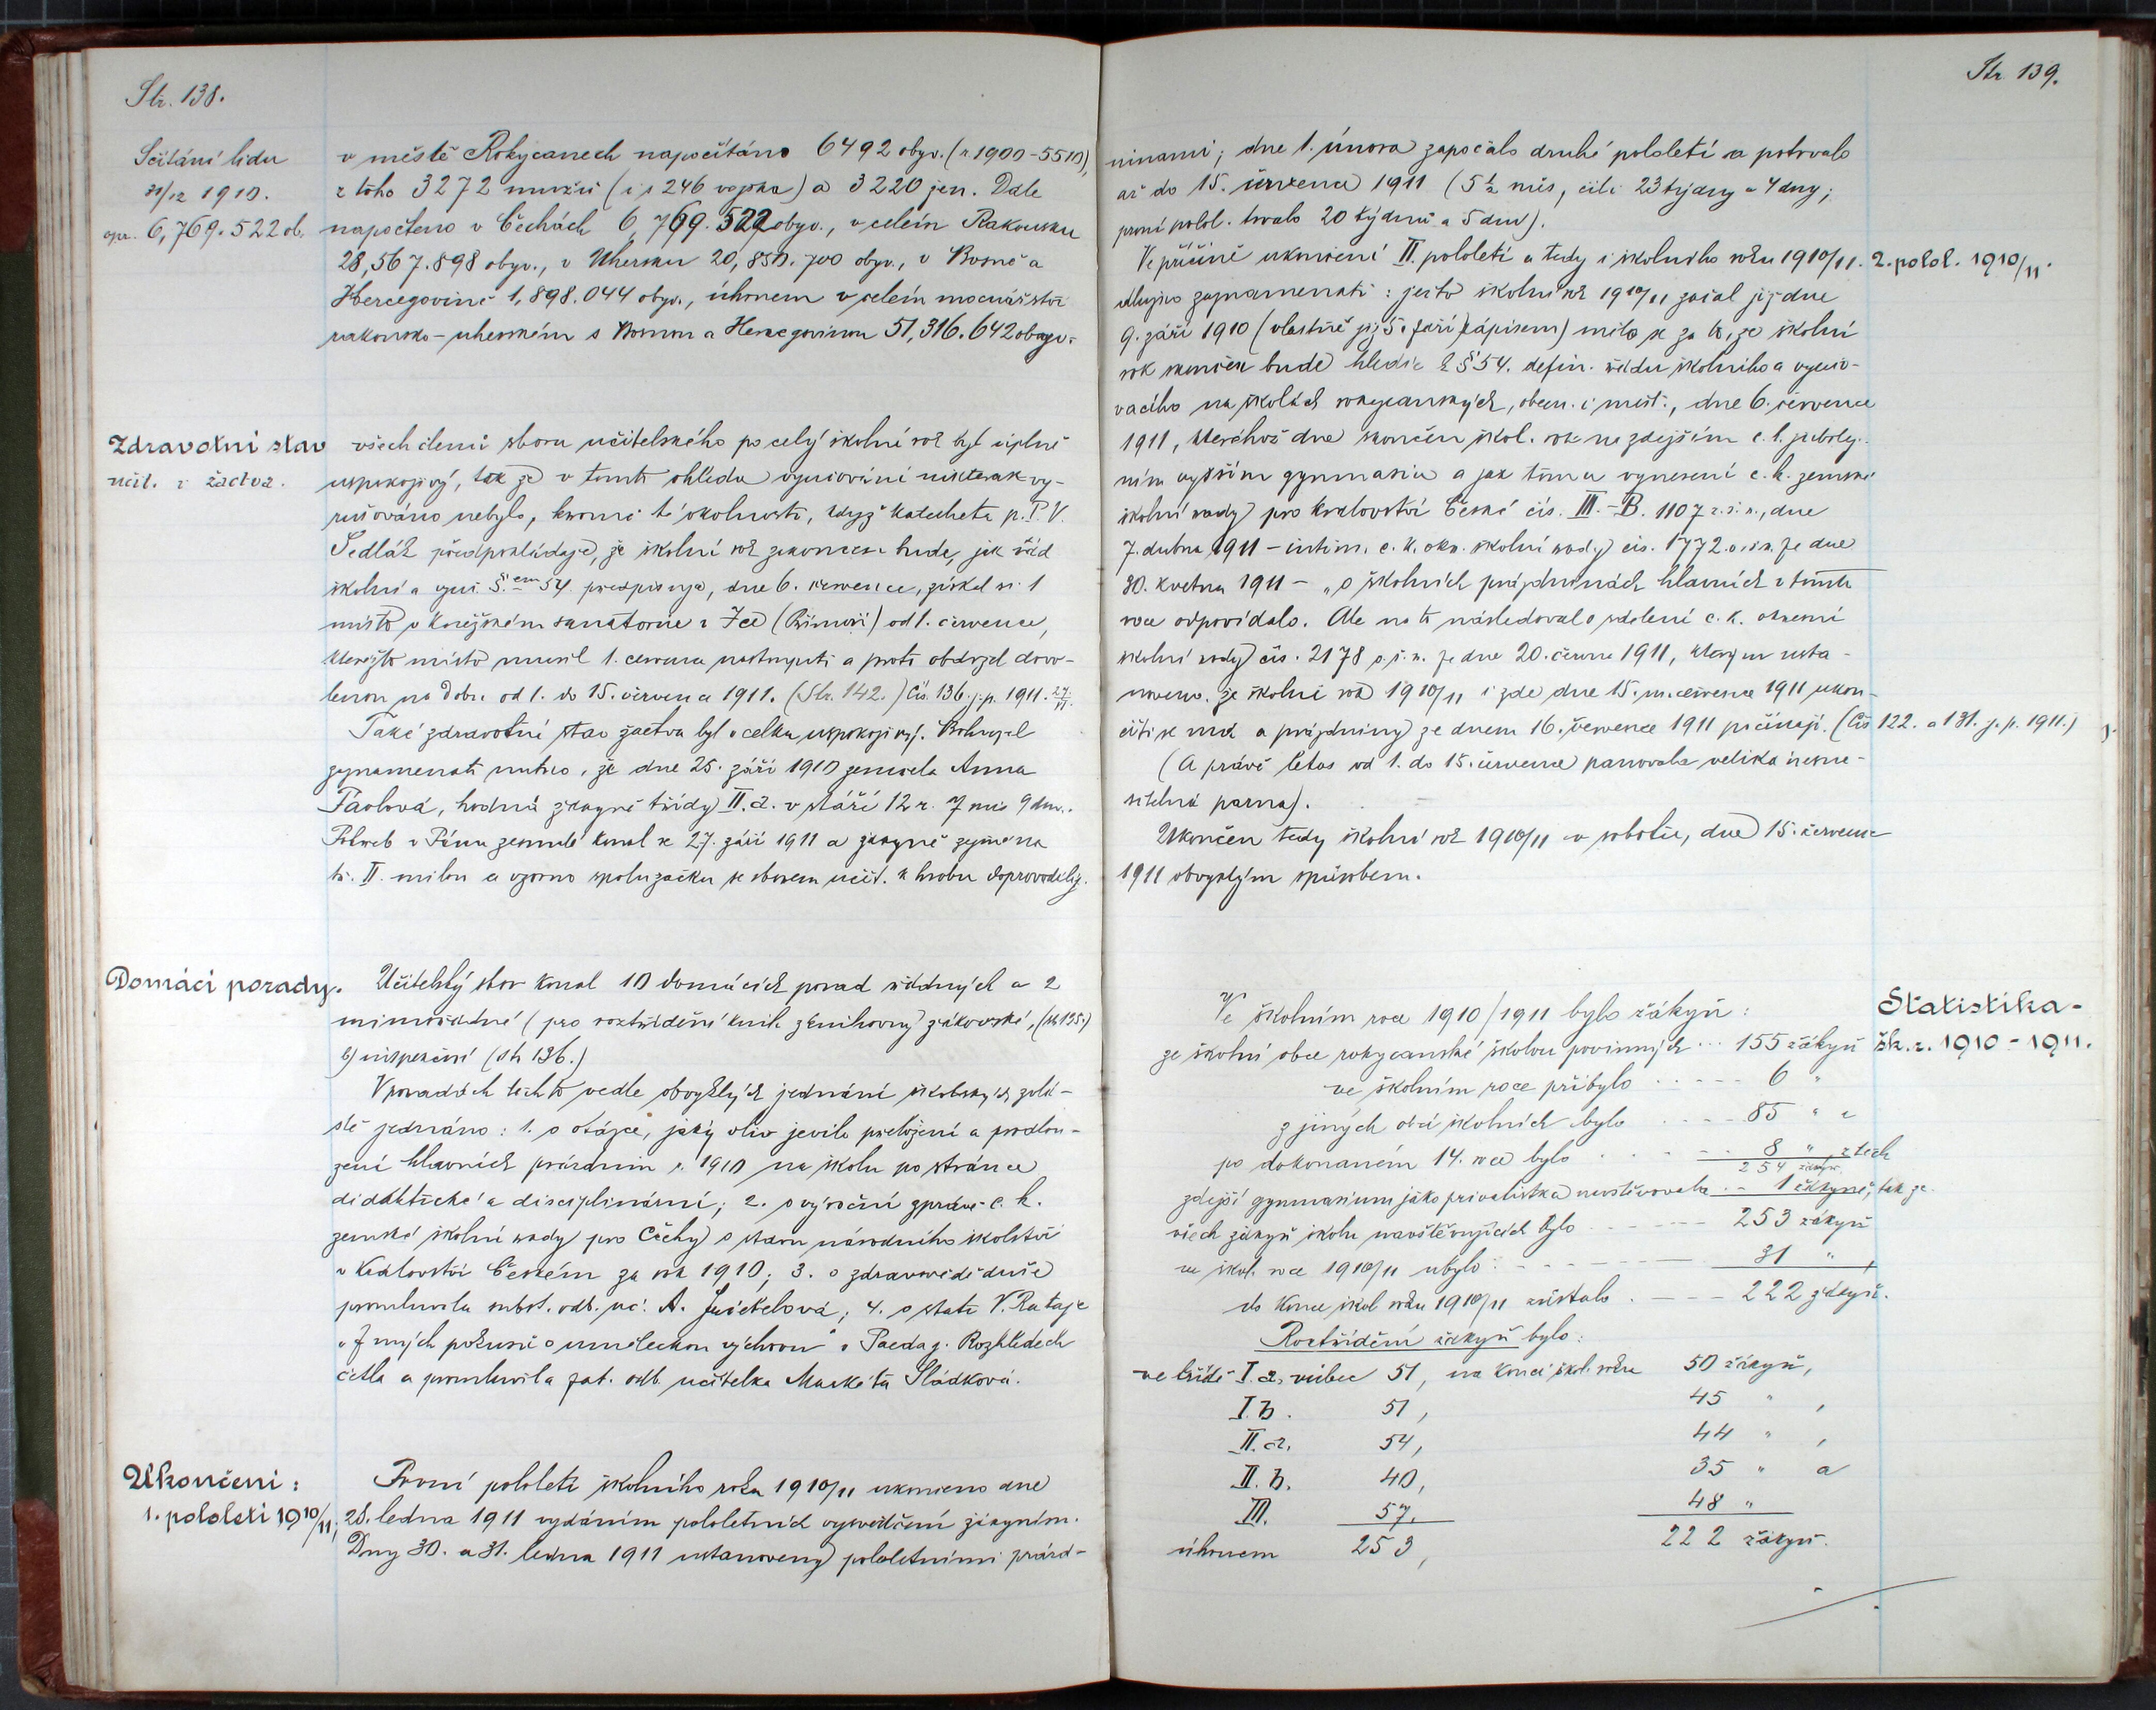 Str. 138.
Sčítání lidu
31/12 1910.
opr. 6,769.522 ob.
v městě Rokycanech napočítáno 6492 obyv. (r. 1900 - 5510),
z toho 3272 mužů (i s 246 vojska) a 3220 žen. Dále
napočteno v Čechách 6,769.522 obyv., v celém Rakousku
28,567.898 obyv., v Uhersku 20,850.700 obyv., v Bosně a
Hercegovině 1,898.044 obyv., úhrnem v celém mocnářství
rakousko-uherském s Bosnou a Hercegovinou 51,316.642 obyv.
Zdravotní stav
učit. i žactva.
všech členů sboru učitelského po celý školní rok byl úplně
uspokojivý, tak že v tomto ohledu vyučování nikterak vy-
rušováno nebylo, kromě té okolnosti, když katecheta p. P. V.
Sedlák předpokládaje, že školní rok zakončen bude, jak řád
školní a vyuč. §em 54. předpisuje, dne 6. července, získal si 1
místo v kněžském sanatoriu v Ice (Přímoří) od 1. července,
kteréžto místo musil 1. července nastoupiti a proto obdržel dovo-
lenou na dobu od 1. do 15. července 1911. (Str. 142.) Čís. 136. j. p. 1911. 27/VI.
Také zdravotní stav žactva byl v celku uspokojivý. Bohužel
zaznamenati nutno, že dne 25. září 1910 zemřela Anna
Pavlová, hodná žákyně třídy II. a. v stáří 12 r. 7 měs. 9 dnů.
Pohřeb v Pánu zesnulé konal se 27. září 1911 a žákyně zejména
tř. II. milou a vzornou spolužačku se sborem učit. k hrobu doprovodily.
Domácí porady.
Učitelský sbor konal 10 domácích porad řádných a 2
mimořádné (pro roztřídění knih z knihovny žákovské, (str. 135.)
b) inspekční (str. 136.)
V poradách těchto vedle obvyklých jednání školských zvlá-
ště jednáno: 1. o otázce, jaký vliv jevilo přeložení a prodlou-
žení hlavních prázdnin r. 1910 na školu po stránce
didaktické a disciplinární; 2. o výroční zprávě c. k.
zemské školní rady pro Čechy o stavu národního školství
v království Českém za rok 1910; 3. o zdravovědě duše
promluvila subst. odb. uč. A. Jiříčelová; 4. o stati V. Rataje
„Z mých pokusů o uměleckou výchovu" v Paedag. Rozhledech
četla a promluvila zat. odb. učitelka Markéta Sládková.
Ukončení:
1. pololetí 1910/11;
První pololetí školního roku 1910/11 ukončeno dne
28. ledna 1911 vydáním pololetních vysvědčení žákyním.
Dny 30. a 31. ledna 1911 ustanoveny pololetními prázd-
Str. 139.
ninami; dne 1. února započalo druhé pololetí a potrvalo
až do 15. července 1911 (5 1/2 měs., čili 23 týdny a 4 dny;
první polol. trvalo 20 týdnů a 5 dnů).
Ve příčině ukončení II. pololetí a tedy i školního roku 1910/11.
2. polol. 1910/11.
dlužno zaznamenati: ježto školní rok 1910/11 začal již dne
9. září 1910 (vlastně již 5. září zápisem) mělo se za to, že školní
rok skončen bude hledíc k § 54. defin. řádu školního a vyučo-
vacího na školách rokycanských, obecn. i měšť., dne 6. července
1911, kteréhož dne skončen škol. rok na zdejším c. k. jubilej-
ním vyšším gymnasiu a jak tomu vynesení c. k. zemské
školní rady pro království České čís. III.-B. 1107 z. š. r., dne
7. dubna 1911 - intim. c. k. okr. školní rady čís. 1772 o. š. r. ze dne
30. května 1911 - „o školních prázdninách hlavních v tomto
roce odpovídalo. Ale na to následovalo sdělení c. k. okresní
školní rady čís. 2178 o. š. r. ze dne 20. června 1911, kterým usta-
noveno, že školní rok 1910/11 i zde dne 15. m. července 1911 ukon-
čiti se má a prázdniny ze dnem 16. července 1911 počínají. (Čís. 122. a 131. j. p. 1911.)
(A právě letos od 1. do 15. července panovala veliká nesne-
sitelná parna).
Ukončen tedy školní rok 1910/11 v sobotu, dne 15. července
1911 obvyklým způsobem.
Statistika -
šk. r. 1910 - 1911.
Ve školním roce 1910/1911 bylo žákyň:
ze školní obce rokycanské školou povinných ... 155 žákyň
ve školním roce přibylo ..... 6 "
z jiných obcí školních bylo .... 85 " a
po dokonaném 14. roce bylo ..... 8 " , z těch
254 žákyň
zdejší gymnasium jako privatistka navštěvovala .. 1 žákyně, tak že
všech žákyň školu navštěvujících bylo ...... 253 žákyň
ve škol. roce 1910/11 ubylo: ...... 31 " ,
do konce škol. roku 1910/11 zůstalo .... 222 žákyň.
Roztřídění žákyň bylo:
ve třídě I. a. vůbec 51, na konci škol. roku 50 žákyň,
I. b. 51, 45 " ,
II. a. 54, 44 " ,
II. b. 40, 35 " a
III. 57. 48 "
úhrnem 253, 222 žákyň.